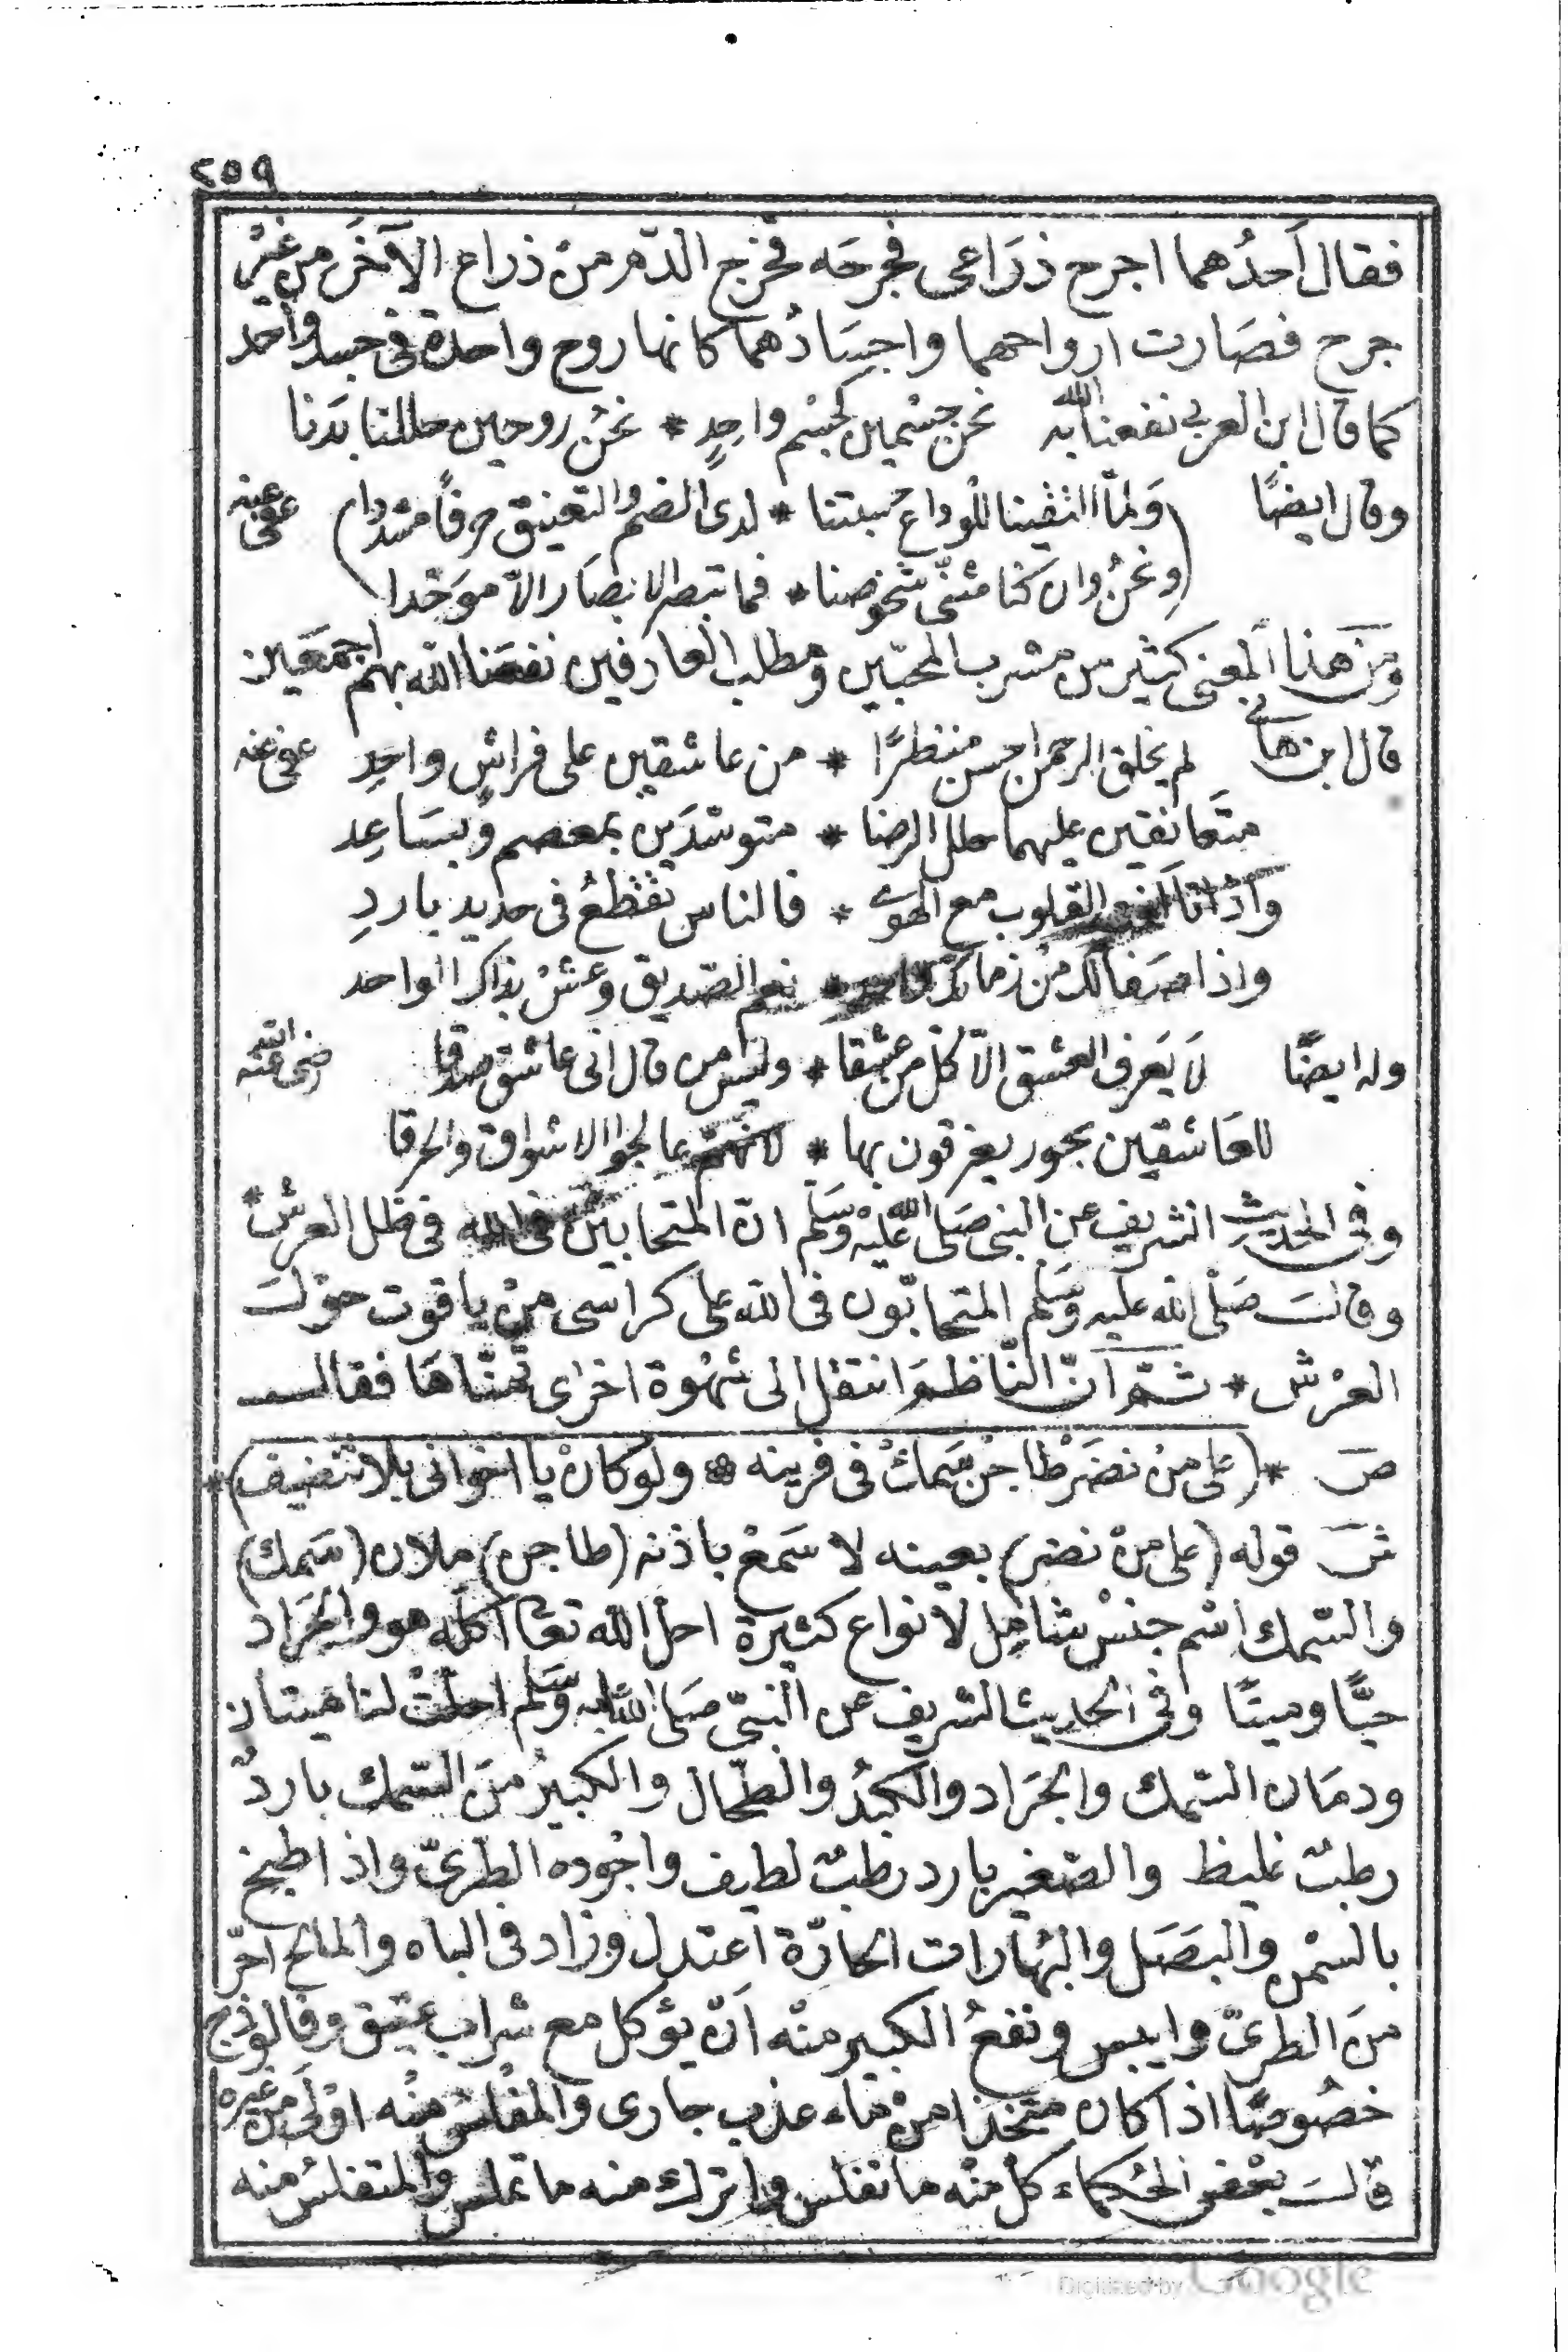 ٢٥٩
فقال اَحدُهما اجرح ذرَاعى فجرحَه فخرج الدّم من ذراع الآخَر من غيْر
جرح فصَارت ارواحهما واجسَادُهما كانها روح واحدة فى جسد واحد
كما قال ابن العربي نفعنا الله به نحن جسْمين كجسْم واحِدٍ * نحْن روحين حللنا بَدَنا
وقال ايضًا (وَلمّا التقينا للوداع حسبتنا * لدى الضم والتعنيق حرفاً مشددا) عفى عنه
(ونحنُ وان كنا مثنّى شخوصنا * فما تبصر الابصَار الاّ موَحّدا
ومن هذا المعنى كثير من مشرب المحبّين ومطلب العارفين نفعَنا الله بهم اجمَعين
قال ابن هانى لم يخلق الرحمن احسن منظرًا * من عاشقين على فراشٍ واحِدِ عفى عنه
متعَانقين عليهما حلل الرضا * متوسّدَين بمعصم وبسَاعِد
واذا تآلفت القلوب مع الهوى * فالناس تقْطعُ فى حديد باردِ
واذا صَفا لك منْ زمانك واحد * نعم الصّديق وعشْ بذاك الواحد
وله ايضًا لاَ يَعرف العشق الاّ كل من عشقا * وليْس من قال انى عاشق صدقا رضى الله عنه
للعَاشقين بحور يغرقون بها * لانهمّ عالجوا الاشواق والحرقا
وفى الحديث الشريف عن النبى صَلى الله عليْه وسَلم انّ المتحابين فى الله فى ظل العرش *
وقالت صَلّى الله عليه وسَلم المتحابّون فى الله على كراسى منْ ياقوت حوْلَ
العرْش * ثمّ انّ النّاظمَ انتقل الى شهْوة اخرى تمنّاهَا فقال
صَ * (على منْ نضَرْ طاجنْ سَمكْ فى فرينه * ولو كانْ يا اخوانى بلا تنضيف) *
شَ قوله (على منْ نضر) بعينه لا سَمعْ باذنه (طاجن) ملان (سَمك)
والسّمك اسْم جنسْ شامِل لانواع كثيرة احل الله تعا اكله هو والجَراد
حيًّا وميتًا وفى الحديث الشريف عن النبىّ صَلى الله عليه وسَلم احلتْ لنا ميتتان
ودمَان السّمك والجَراد والكبدُ والطّحال والكبيرُ منَ السّمك باردٌ
رطبٌ غليظ والصّغير بارد رطبٌ لطيف واجوده الطّرىّ واذا طبخ
بالسّمْن والبصَل والبهَارات الحارّة اعتدل وزاد فى الباه والمالح احرّ
منَ الطرىّ وايبس ونفعُ الكبير منْه انّ يؤكل مع شراب عتيق وفالوذج
خصُوصًا اذا كان متخذا منْ مَاء عذب جارى والمفْلس منْه اوْلَى من غيره
قالَ بعْض الحُكماء كل منْه ما تفلس واترك منه ما تملس والمتفلسُ منه
Digitized by Google